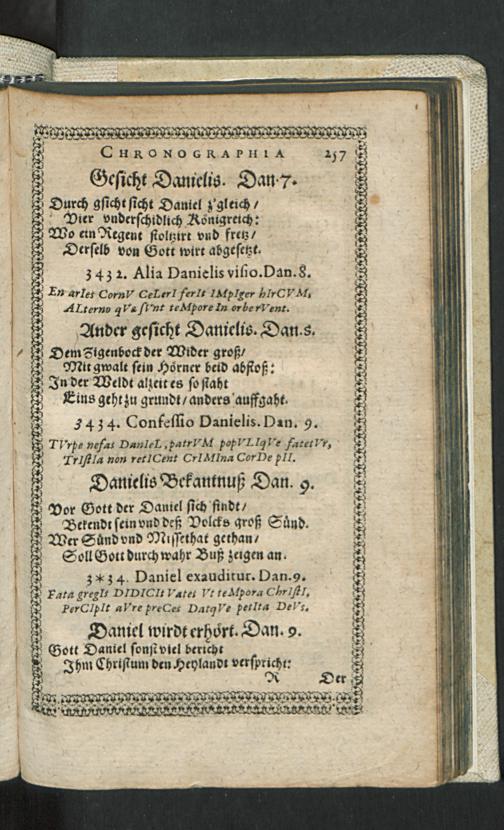 CHRONOGRAPHIA 257
Gesicht Danielis. Dan. 7.
Durch gsicht sicht Daniel z'gleich /
Vier vnderschidlich Königreich:
Wo ein Regent stoltzirt vnd fretz /
Derselb von Gott wirt abgesetzt.
3432. Alia Danielis visio. Dan. 8.
En arIes CornV CeLerI ferIt IMpIger hIrCVM,
ALterno qVæ sVnt teMpore In orbe rVent.
Ander gesicht Danielis. Dan. 8.
Dem Zigenbock der Wider groß /
Mit gwalt sein Hörner beid abstoß:
In der Weldt alzeit es so staht
Eins geht zu grundt / anders auffgaht.
3434. Confessio Danielis. Dan. 9.
TVrpe nefas DanIeL, patrVM popVLIqVe fatetVr,
TrIstIa non retICent CrIMIna CorDe pII.
Danielis Bekantnuß Dan. 9.
Vor Gott der Daniel sich findt /
Bekendt sein vnd deß Volcks groß Sünd.
Wer Sünd vnd Missethat gethan /
Soll Gott durch wahr Buß zeigen an.
3*34. Daniel exauditur. Dan. 9.
Fata gregIs DIDICIt Vates Vt teMpora ChrIstI,
PerCIpIt aVre preCes DatqVe petIta DeVs.
Daniel wirdt erhört. Dan. 9.
Gott Daniel sonst viel bericht
Ihm Christum den Heylandt verspricht:
R Der